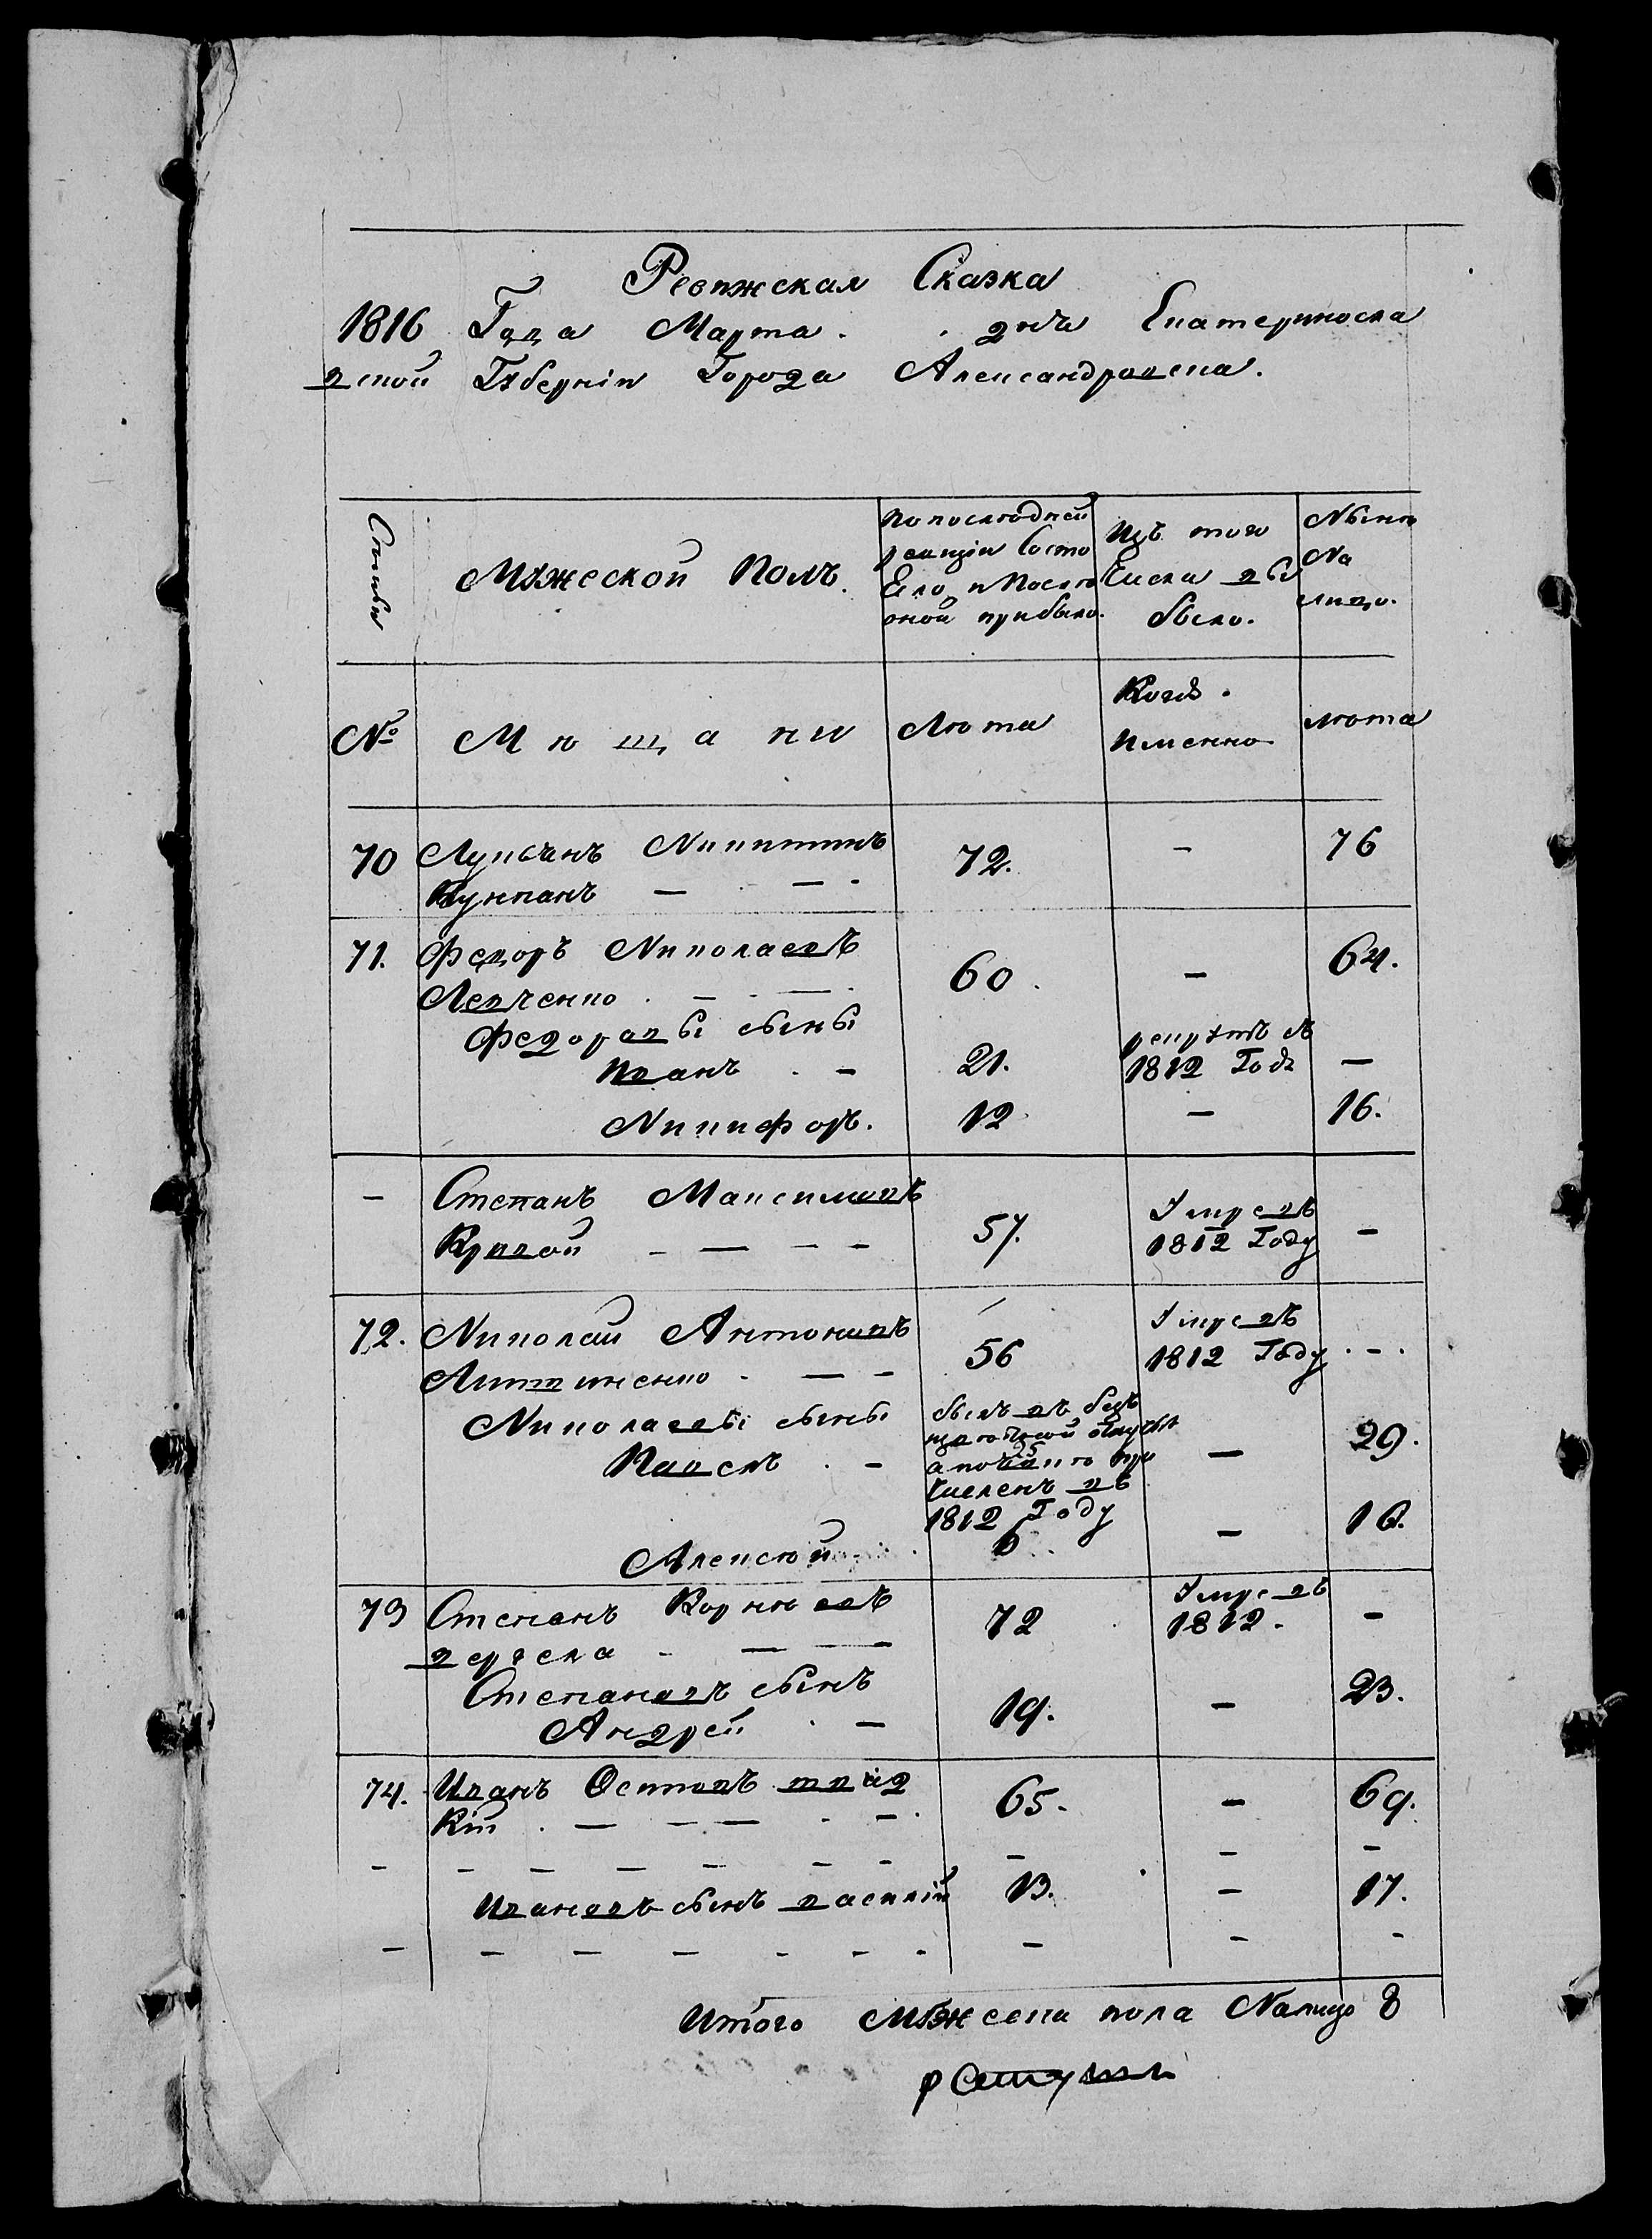 Ревижская Сказка
1816 Года Марта . . дня Екатеринослав
вской Губерніи Города Александровска.
Семьи
Мужеской Полъ.
По последней ревизіи Состо
Ело и После оной прибыло.
Изъ того Числа вы
было.
Ныне
На
лицо.
№ М ѣ щ а ни Лѣта Когда Именно лѣта
70 Лукьянъ Никитинъ 72. - 76
— - — -
71. Федоръ Николаевъ 60. - 64.
Левченко . - . — .
Федоровы сыны
Иванъ . - 21. рекрутъ въ 1812 Годѣ —
Никифоръ. 12 - 16.
- Степанъ Максимовъ 57. Умре въ 1812 Году -
Кривой - — - -
72. Николай Антоновъ 56 Умре въ 1812 Году . - .
Литвиненко . — -
Николаевы сыны
Павелъ . - былъ въ безъ 25 численъ въ 1812 Году — 29.
Алексѣй . 6 . - 16.
73 Степанъ Корнѣевъ 72 Умре въ 1812. -
- — —
Степановъ сынъ
Андрей . — 19. - 23.
74. Иванъ Осиповъ 65. - 69.
. — - — . - .
- - - - - - - - - -
Ивановъ сынъ Василій 13. - 17.
- - - - - - - . - - -
Итого Мужеска пола Налицо 8